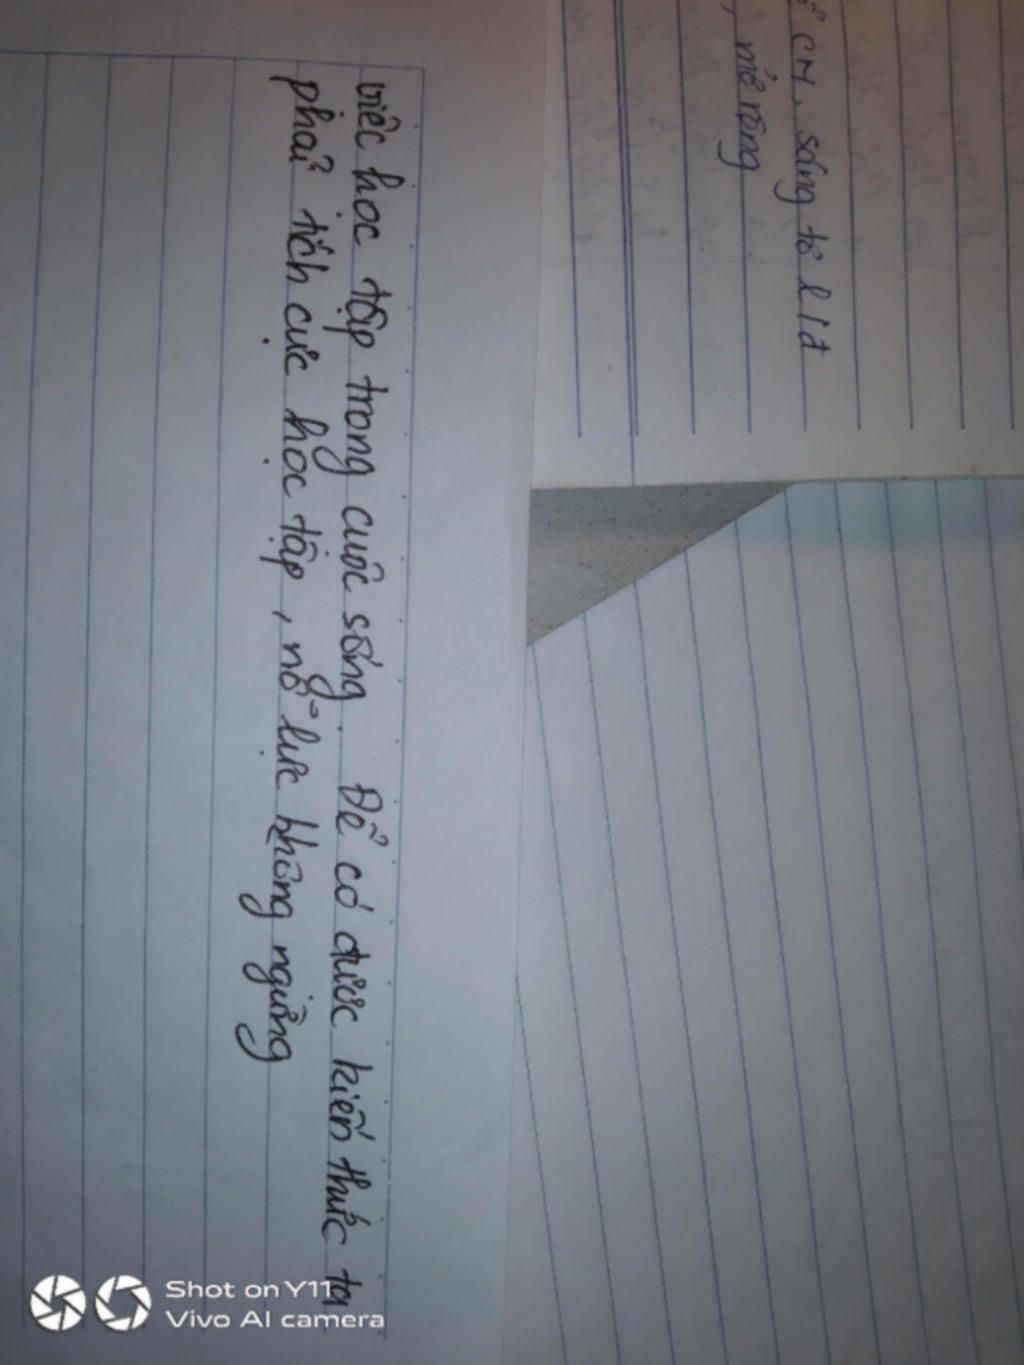 CM, sáng tỏ l lđ
, mở rộng
việc học tập trong cuộc sống. Để có được kiến thức ta
phải tích cực học tập, nỗ lực không ngừng
Shot on Y11
Vivo AI camera